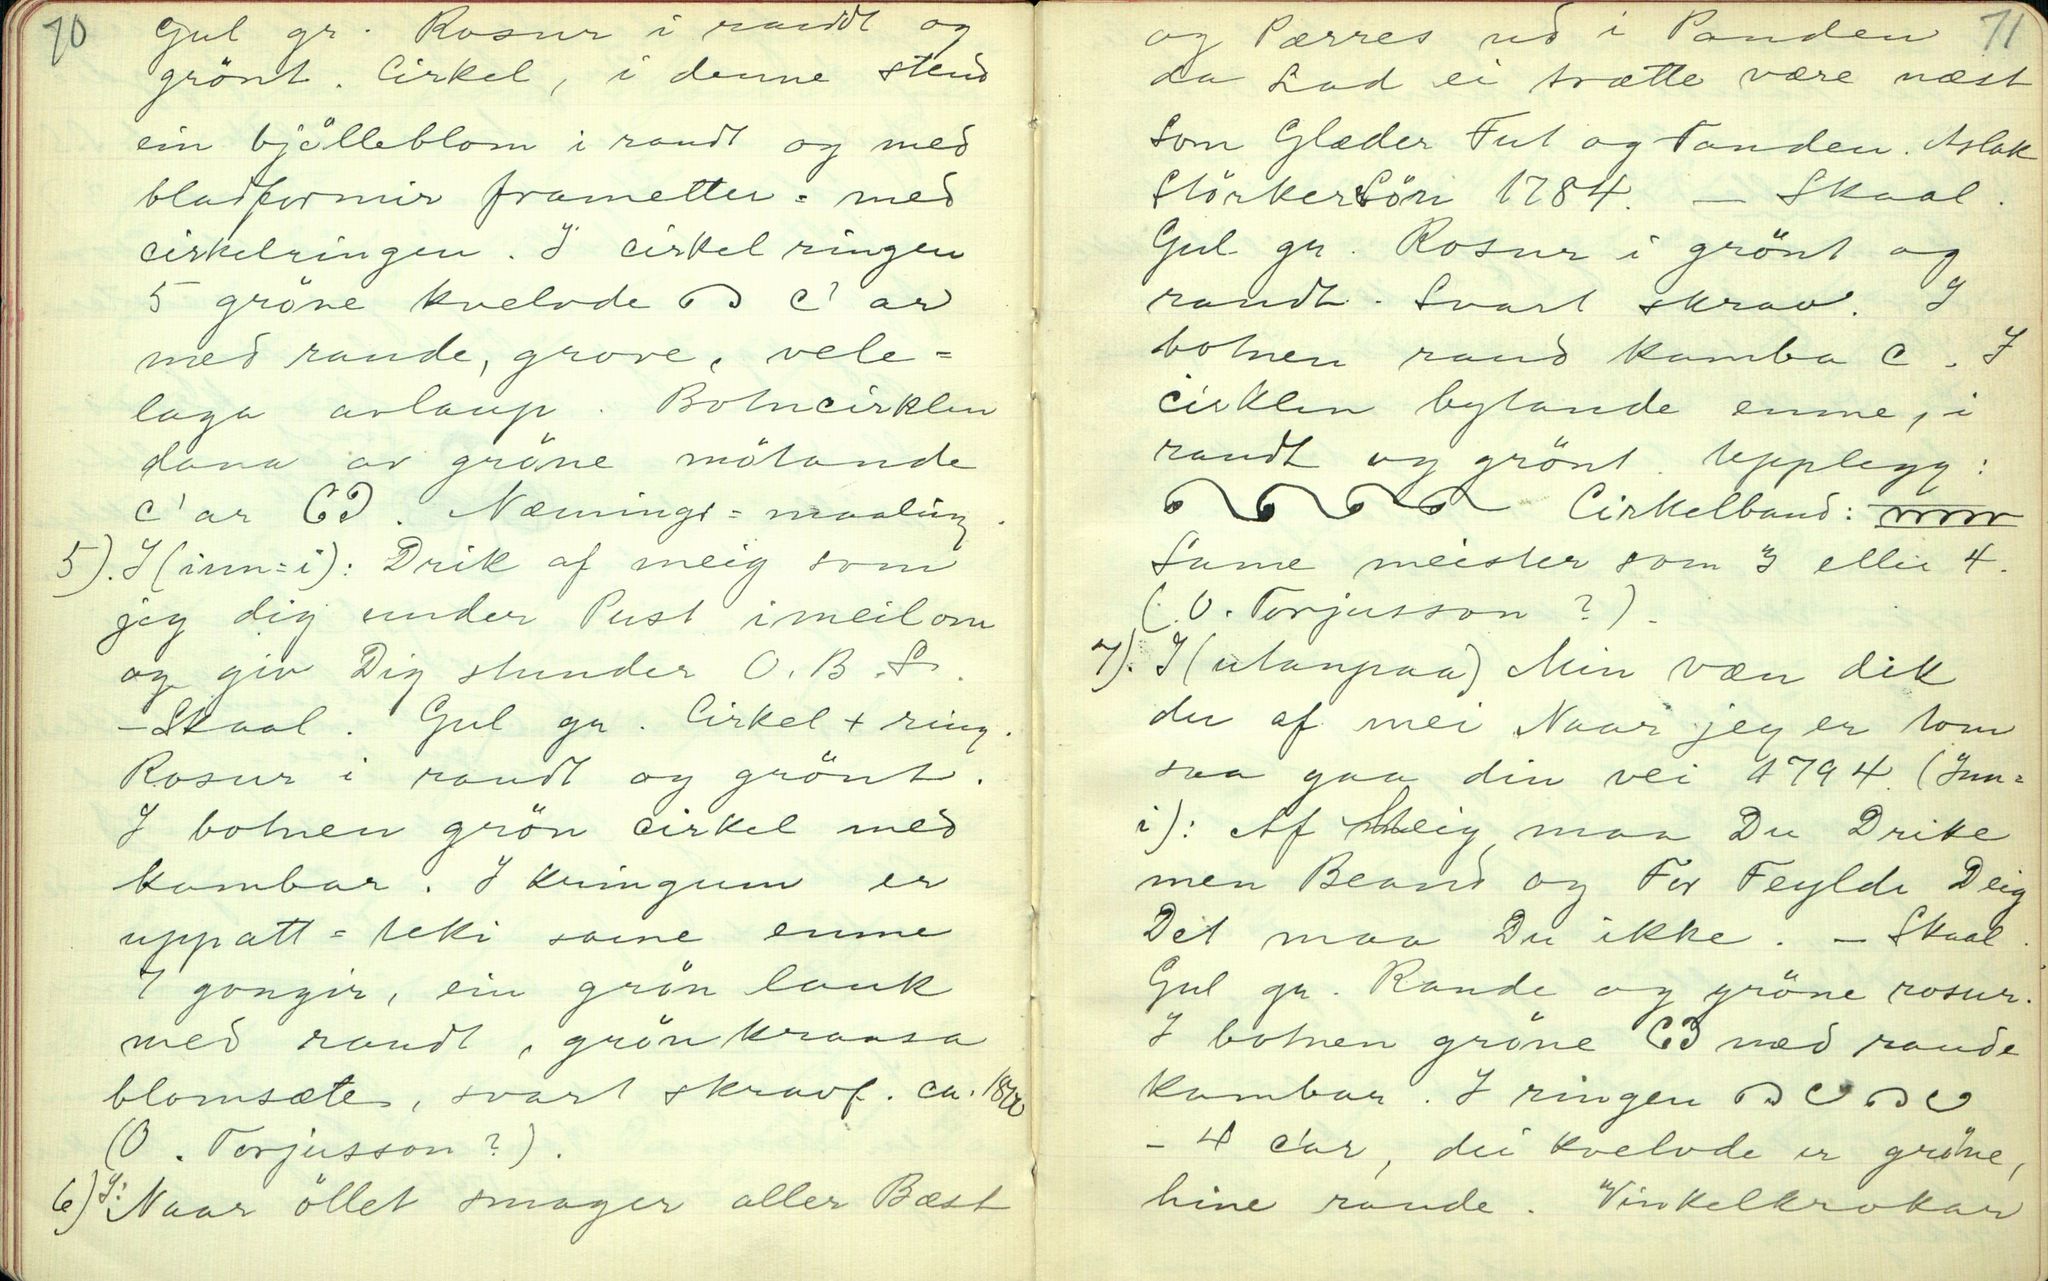 70
Gul gr. Rosur i raudt og
grönt. Cirkel, i denne stend
ein bjölleblom i raudt og med
bladformir frametter = med
cirkelringen. I cirkelringen
5 gröne kvelvde c'ar
med raude, grove, vele =
laga avlaup. Botncirklen
dana av gröne mötande
c'ar. Næmings = maaling.
5). I (inn = i): Drik af meig som
jeg dig under Pust imeilom
og giv Dig stunder O. B. S.
- Skaal. Gul gr. Cirkel + ring.
Rosur i raudt og grönt.
I botnen grön cirkel med
kambar. I kringum er
uppatt = teki same emne
7 gongir, ein grön lauk
med raudt, grönkraasa
blomsæte, svart skravf. ca. 1800
(O. Torjusson ?).
6) I: Naar öllet smager aller Bæst
71
og Pærres ud i Panden
da Lad ei trætte være næst
Som Glæder Fut og Fanden. Aslak
StörkerSön 1784. — Skaal.
Gul gr. Rosur i grönt og
raudt. Svart skrav. I
botnen raud kamba c. I
cirklen bytande emne, i
raudt og grönt. Upplegg:
Cirkelband:
Same meister som 3 eller 4.
(O. Torjusson ?).
7). I (utanpaa) Min væn dik
du af mei Naar jeg er tom
saa gaa din vei 1794. (Inn =
i): Af Meig maa Du Drike
men Beand og For Feylde Deig
Det maa Du ikke. — Skaal.
Gul gr. Raude og gröne rosur.
I botnen gröne med raude
kambar. I ringen
- 4 c'ar, dei kvelvde er gröne,
hine raude. Vinkelkrokar